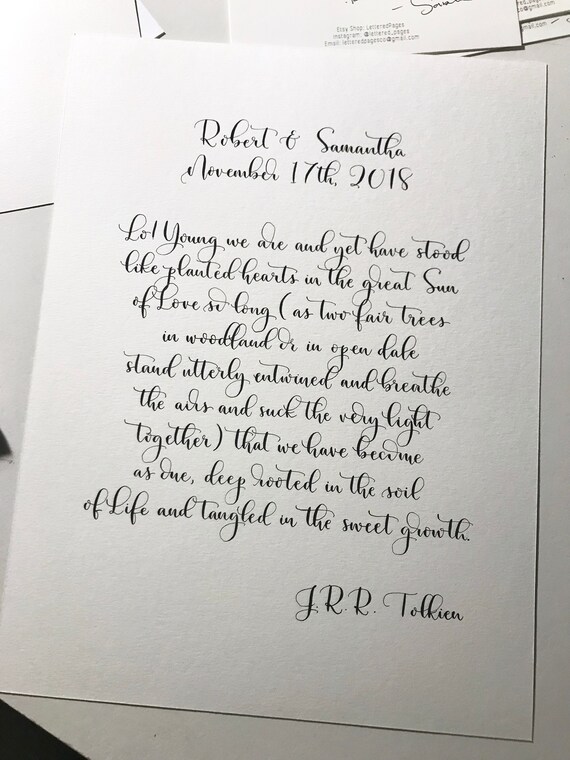 Etsy Shop: LetteredPages
Instagram: @lettered_pages
Email: letteredpagesco@gmail.com
Robert & Samantha
November 17th, 2018
Lo! Young we are and yet have stood
like planted hearts in the great Sun
of Love so long (as two fair trees
in woodland or in open dale
stand utterly entwined and breathe
the airs and suck the very light
together) that we have become
as one, deep rooted in the soil
of Life and tangled in the sweet growth.
J.R.R. Tolkien